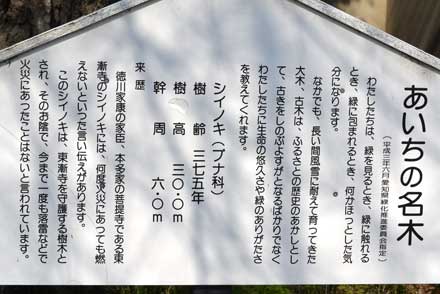 あいちの名木
（平成三年六月愛知県緑化推進委員会指定）
わたしたちは、緑を見るとき、緑に触れる
とき、緑に包まれるとき、何かほっとした気
分になります。
なかでも、長い間風雪に耐えて育ってきた
大木、古木は、ふるさとの歴史のあかしとし
て、古きをしのぶよすがとなるばかりでなく
わたしたちに生命の悠久さや緑のありがたさ
を教えてくれます。
シイノキ（ブナ科）
樹齢 三七五年
樹高 三〇・〇ｍ
幹周 六・〇ｍ
来歴
徳川家康の家臣、本多家の菩提寺である東
漸寺のシイノキには、何度火災にあっても燃
えないといった言い伝えがあります。
このシイノキは、東漸寺を守護する樹木と
され、そのお陰で、今まで一度も落雷などで
火災にあったことはないと言われています。